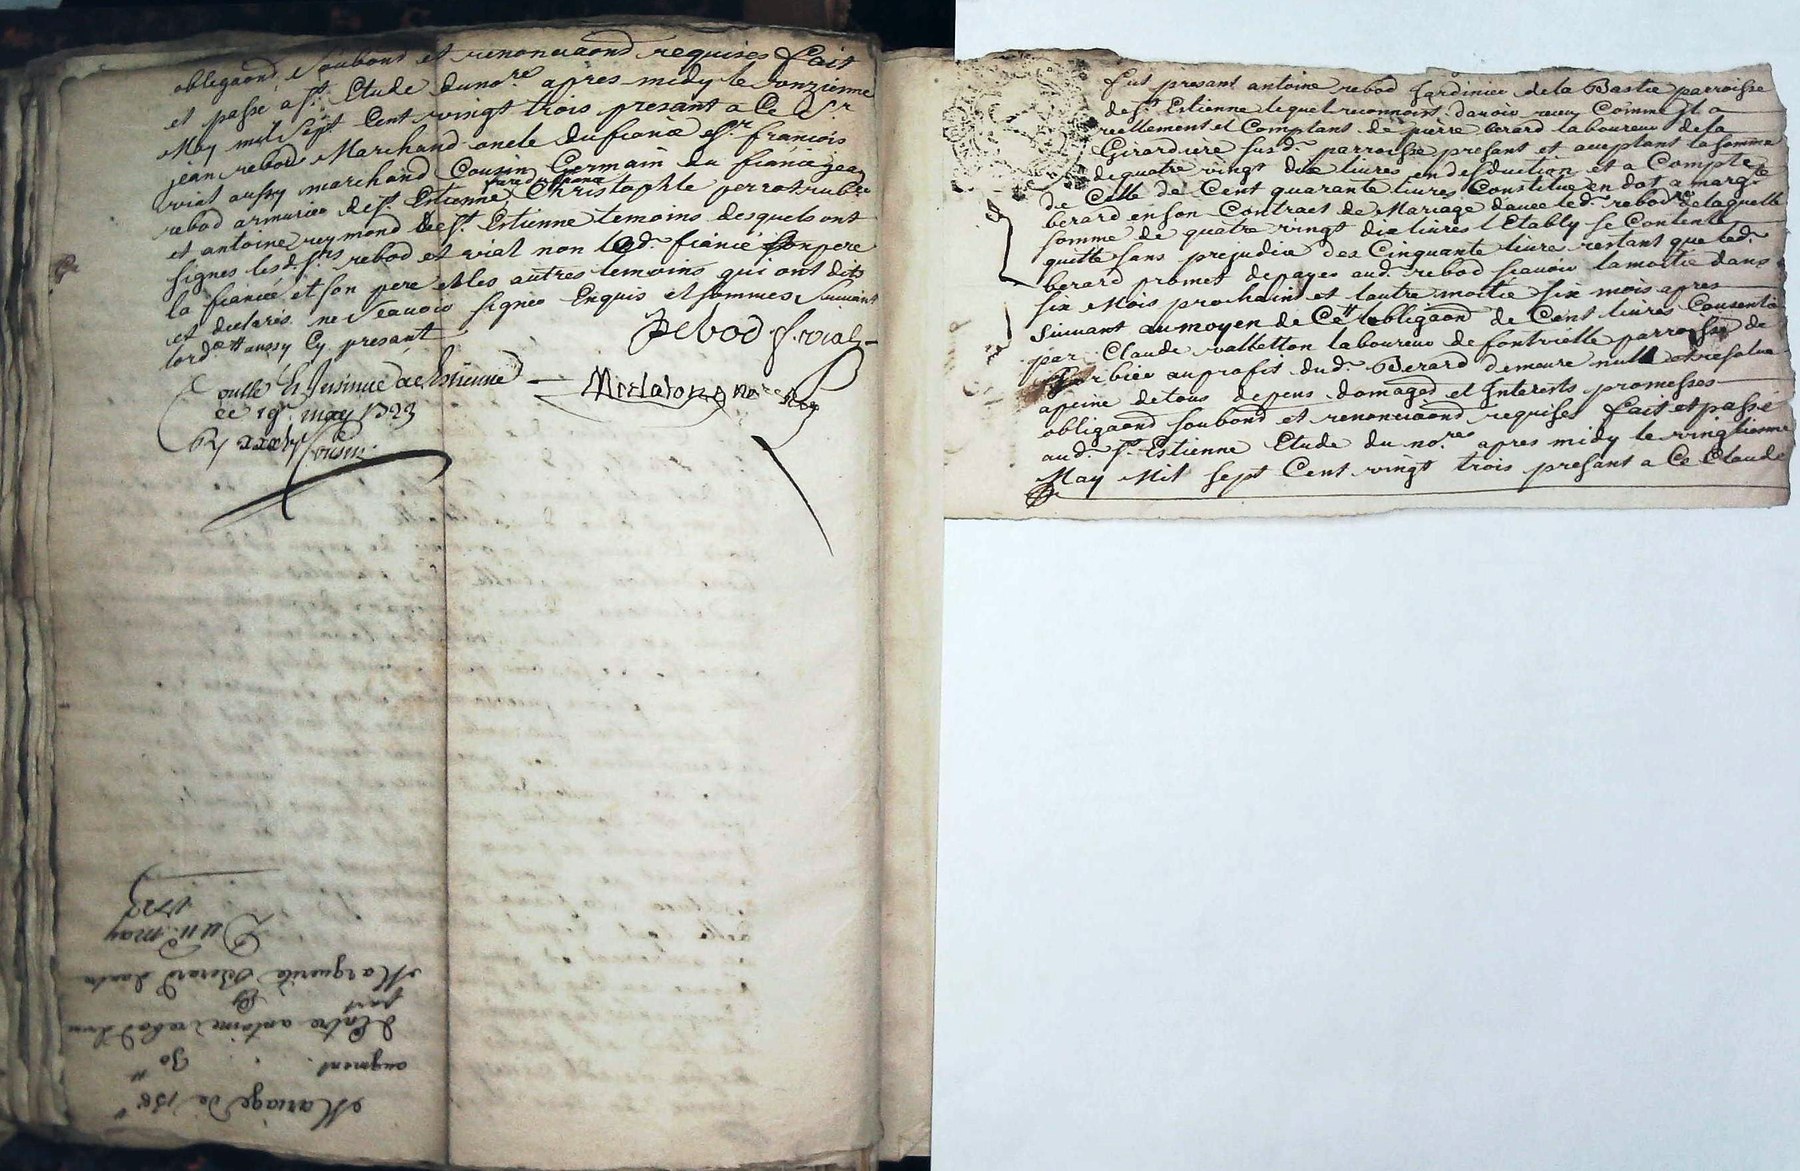 obligaond soubond et renonciaond requises fait
et passé a st. Etude du nore. apres midy le onzieme
May mil sept Cent vingt trois presant a Ce Sr.
jean rebod Marchand oncle du fiancé sr. françois
vial aussy marchand Cousin Germain du fiancé jean
pere du fiancé
rebod armurier de st Estienne Christophle perrot
et antoine reymond de st. Estienne temoins desquels ont
signes lesd. srs rebod et vial non led. fiancé son pere
la fiancée et son pere et les autres temoins qui ont dits
et declarés ne sçavoir signer Enquis et sommes suivant
lord. aussy Cy presant
Rebod f. vial
Controllé et Insinué a st Estienne
ce 19e. may 1723
Mariage de 150ll
augment. 30ll
Entre antoine rebod dune
part
Et
Marguerite Berard dautre
Du 11 may
1723
fut presant antoine rebod Jardinier de la Bastie parroisse
de st. Estienne lequel reconnoist davoir receu Comme il a
reellement et Comptant de pierre berard laboureur de la
Girardiere susd. parroisse presant et acceptant la somme
de quatre vingt dix livres en desduction et a Compte
de Celle de Cent quarante livres Constitué en dot a margte
berard en son Contract de Mariage avec led. rebod de laquelle
somme de quatre vingt dix livres l'Etably se Contente
quitte sans prejudice des Cinquante livre restant que led.
berard promet de payer aud. rebod sçavoir la moitie dans
six Mois prochains et lautre moitie six mois apres
suivant au moyen de Ce obligaond de Cent livres Consentie
par Claude valletton laboureur de fontvielle parroisse de
Sorbier au profit dud. Berard demeure nulle et resolue
apeine de tous depens domages et Interests promesses
obligaond soubond et renonciaond requises fait et passé
aud. st. Estienne Etude du nore. apres midy le vingtieme
May Mil sept Cent vingt trois presant a Ce Claude